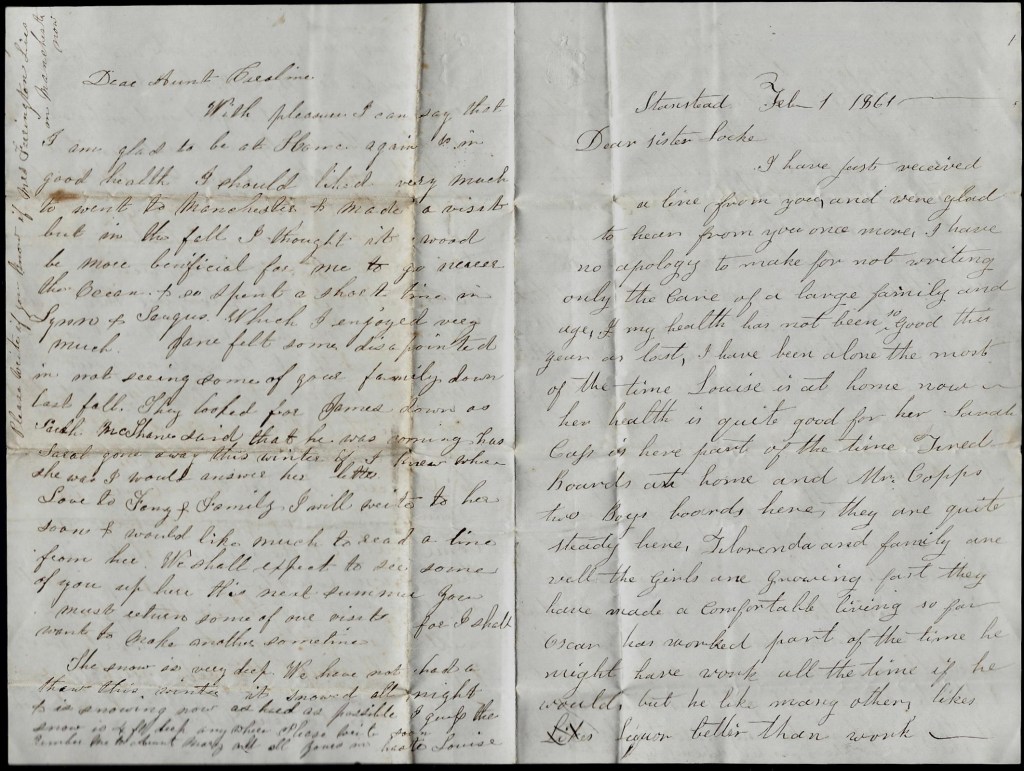 Dear Aunt
With pleasure I can say that
I am glad to be at Home again & in
good health I should liked very much
to went to Manchester & made a visit
but in the fall I thought it wood
be more benificial for me to go nearer
the Ocean & so spent a short time in
Lynn & Saugus. Which I enjoyed very
much. Jane felt some disapointed
in not seeing some of your family down
last fall. They looked for James down as
Sarah McShane said that he was coming has
Sarah gone away this winter if I knew where
she was I would answer her letter.
Love to & Family I will write to her
soon & would like much to read a line
from her. We shall expect to see some
of you up here this next summer you
must return some of our visits for I shall
want to make another sometime
The snow is very deep We have not had a
thaw this winter it snowed all night
& is snowing now as hard as possible I guess the
snow is 4 ft deep any where Please write soon
all yours in haste Louise
Please write if you know if Farington lives
in Manchester
now
1
Stanstead Feb 1 1861
Dear sister Locke
I have just received
a line from you, and were glad
to hear from you once more, I have
no apology to make for not writing
only the Care of a large family and
age, & my health has not been so Good this
year as last, I have been alone the most
of the time Louise is at home now
her health is quite good for her Sarah
is here part of the time
Boards at home and Mr. Copps
two Boys boards here, they are quite
steady here, Florenda and family are
well the Girls are Growing fast they
have made a Comfortable living so far
Oscar has worked part of the time he
might have work all the time if he
would, but he like many other, likes
Liquor better than work